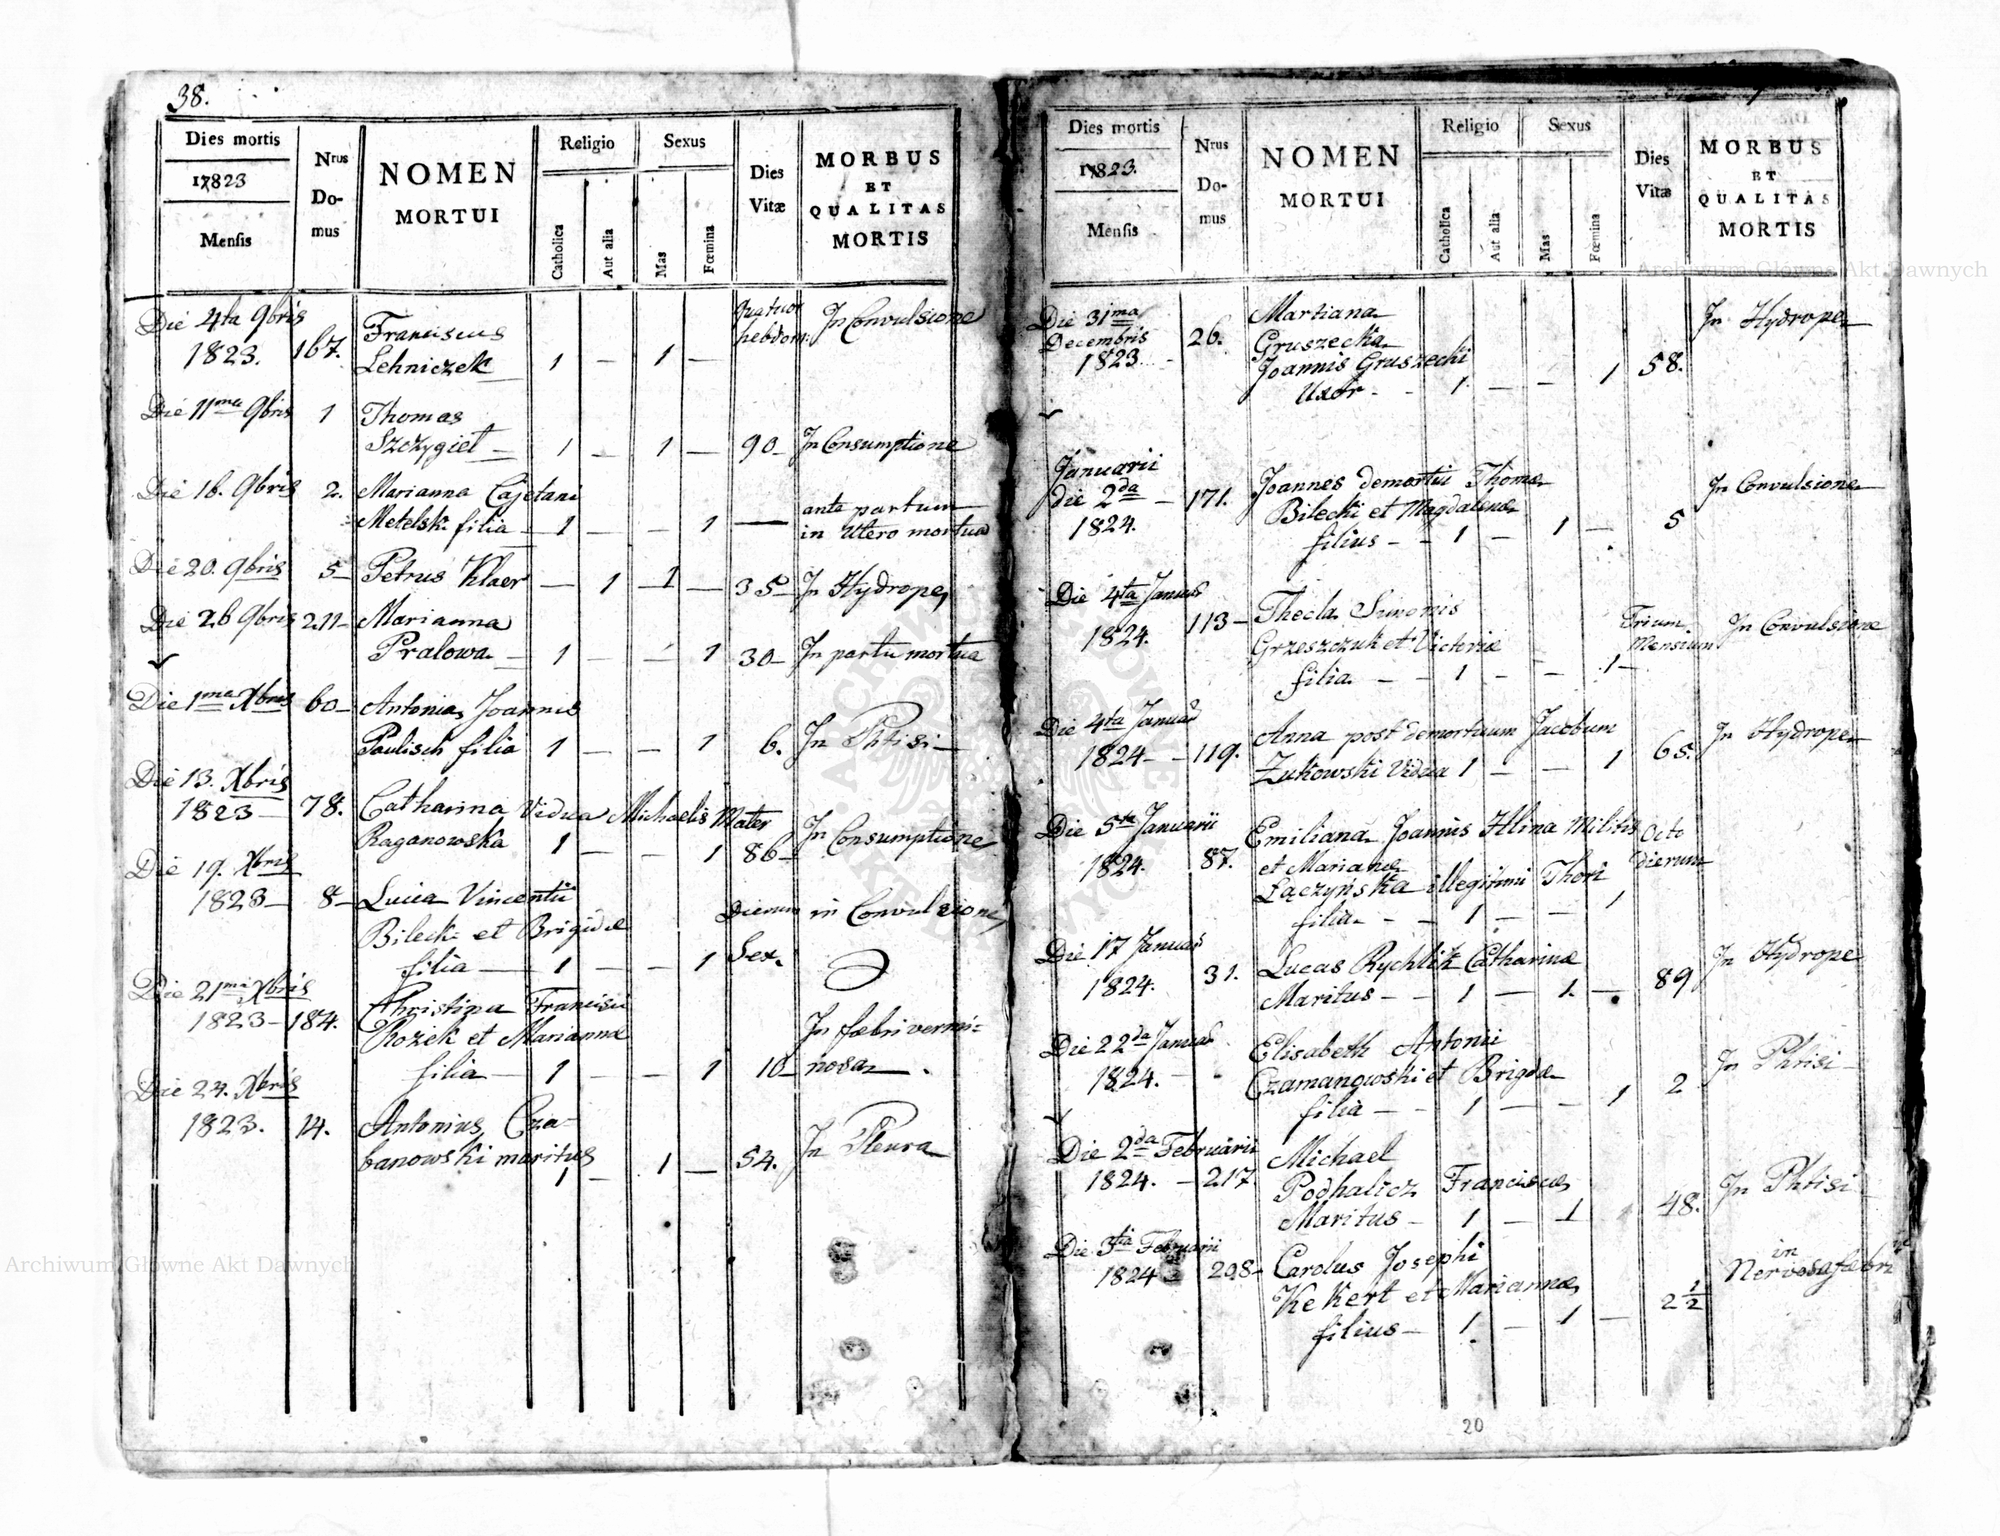 38.
Dies mortis
17823
Mensis
Nrus
Do-
mus
NOMEN
MORTUI
Religio
Catholica
Aut alia
Sexus
Mas
Fœmina
Dies
Vitæ
MORBUS
ET
QUALITAS
MORTIS
Die 4ta 9bris
1823. 167. Franciscus
Lehniczek 1 — 1 —
quatuor
hebdom: In Convulsione
Die 11ma 9bris 1 Thomas
Szczygieł — 1 — 1 — 90 — In Consumptione
Die 16. 9bris 2. Marianna Cajetani
Metelski filia — 1 — — 1 —
ante partum
in Utero mortua
Die 20. 9bris 5 — Petrus Klaer — 1 — 1 — 35 — In Hydrope
Die 26 9bris 211 — Marianna
Pralowa — 1 — — 1 30 — In partu mortua
Die 1ma Xbris 60 — Antonia Joannis
Paulisch filia 1 — — 1 6. In Phtisi —
Die 13. Xbris
1823 — 78. Catharina Vidua Michaelis Mater
Raganowska 1 — — 1 86 — In Consumptione
Die 19. Xbris
1823 — 8 — Lucia Vincentii
Bilecki et Brigidæ
filia — 1 — — 1
Dierum
Sex. in Convulsione
Die 21ma Xbris
1823 — 184. Christina Francisci
Rozek et Mariannæ
filia — 1 — — 1 10 —
In febri vermi=
nosa — .
Die 24. Xbris
1823. 14. Antonius Cza-
banowski maritus
1 — 1 — 54. In Pleura
Dies mortis
17823.
Mensis
Nrus
Do-
mus
NOMEN
MORTUI
Religio
Catholica
Aut alia
Sexus
Mas
Fœmina
Dies
Vitæ
MORBUS
ET
QUALITAS
MORTIS
Die 31ma
Decembris
1823 26. Marianna
Gruszecka
Joannis Gruszecki
Uxor - 1 — — 1 58. In Hydrope
Januarii
die 2da —
1824. 171. Joannes demortui Thomæ
Bilecki et Magdalenæ
filius — 1 — 1 — 5 In Convulsione
Die 4ta Januar
1824. 113 — Thecla Simonis
Grzeszczuk et Victoriæ
filia — — 1 — — 1 —
Trium
Mensium In Convulsione
Die 4ta Januar
1824 — 119. Anna post demortuum Jacobum
Zukowski Vidua 1 — — 1 65. In Hydrope
Die 5ta Januarii
1824. 87. Emiliana Joannis Illina Militis
et Marianæ
Łączyńska illegitimi Thori
filia — — 1 — — 1
Octo
Dierum
Die 17 Januar
1824. 31. Lucas Rychlik Catharinæ
Maritus — — 1 — 1. — 89 In Hydrope
Die 22da Januar
1824. — Elisabeth Antonii
Czamanowski et Brigdæ
filia — — 1 — — 1 2 In Phtisi —
Die 2da Februarii
1824. — 217. Michael
Podhalicz Franciscæ
Maritus — 1 — 1 48. In Phtisi
Die 3tia Februarii
1824 208 — Carolus Josephi
Kekert et Mariannæ
filius — 1 — 1 — 2 1/2
in
Nervosa febri
20
Archiwum Główne Akt Dawnych
Archiwum Główne Akt Dawnych